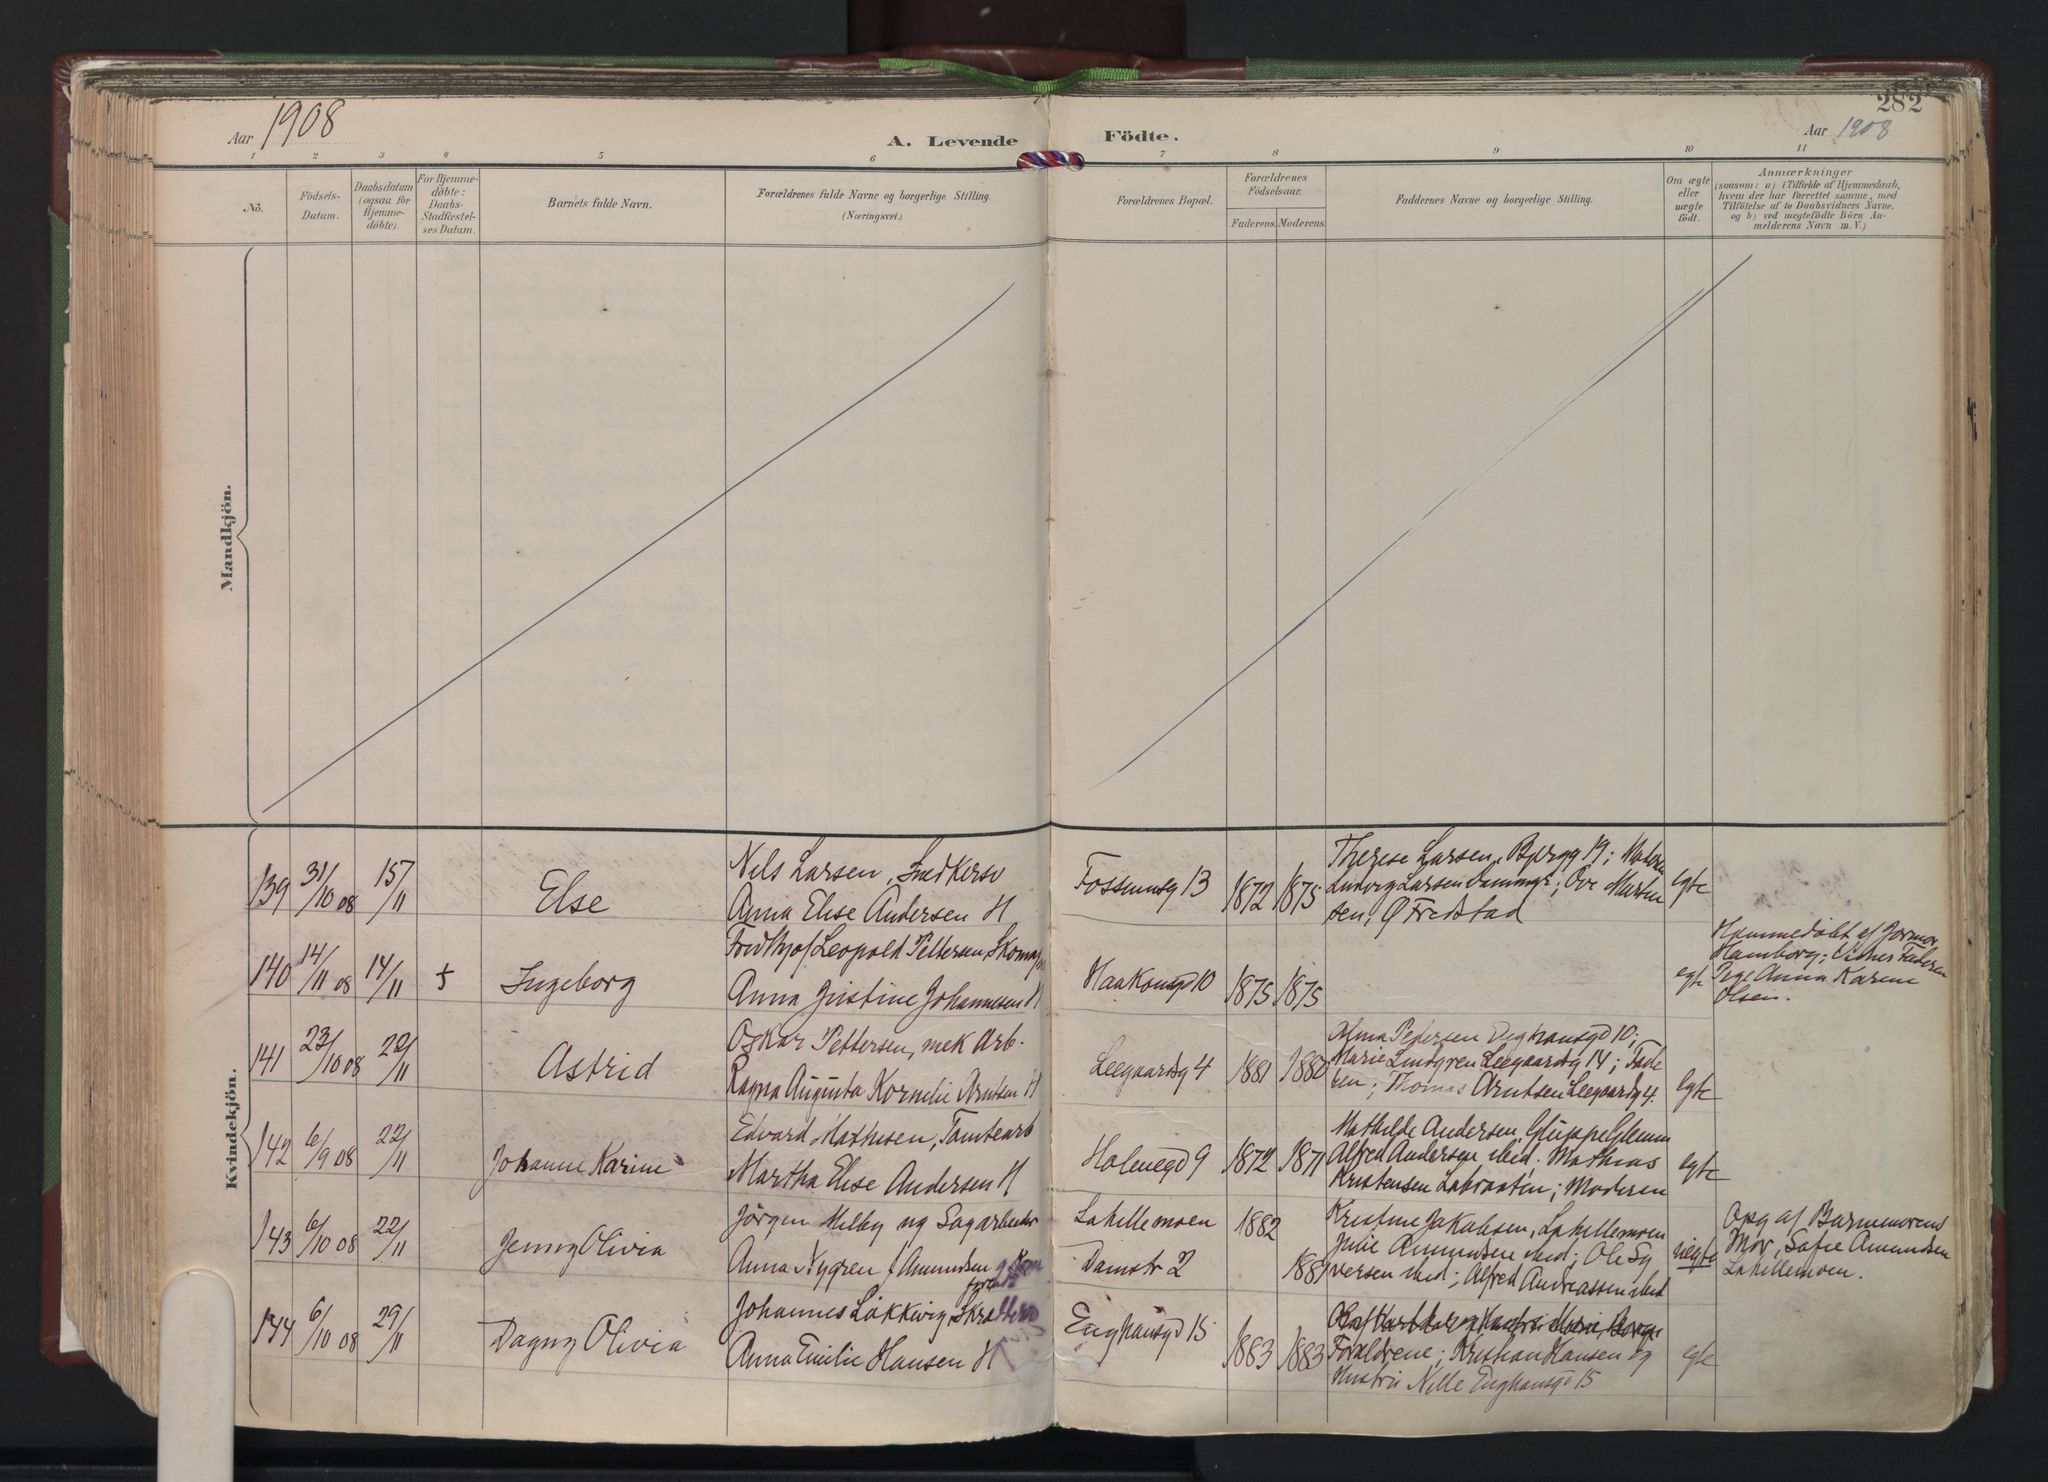 282
Aar 1908
A. Levende Födte.
Aar 1908
1 2 3 4 5 6 7 8 9 10 11
Nö.
Födsels-
Datum.
Daabsdatum
(ogsaa for
Hjemme-
döbte).
For Hjemme-
döbte:
Daabs-
Stadfæstel-
ses Datum.
Barnets fulde Navn.
Forældrenes fulde Navne og borgerlige Stilling.
(Næringsvei.)
Forældrenes Bopæl.
Forældrenes
Födselsaar.
Faderens. Moderens.
Faddernes Navne og borgerlige Stilling.
Om ægte
eller
uægte
födt.
Anmærkninger
(saasom: a) i Tilfælde af Hjemmedaab,
hvem der har forrettet samme, med
Tilföielse af to Daabsvidners Navne.
og b) ved uegtefödte Börn An-
melderens Navn m. V.)
Mandkjön.
Kvindekjön.
139
31/10 08
15/11
Else
Nils Larsen, Snedkersv
Anna Elise Andersen H
Fossumsg 13
1872
1875
Therese Larsen, Bjergg 19; Moderen
Ludvig Larsen Dammyr; Ove Marten
sen, Ø Fredstad
egte
140
14/11 08
14/11
Ingeborg
Fridthjof Leopold Pettersen, Skomager
Anna Justine Johannesen H
Haakonsgd 10
1875
1875
egte
Hjemmedøbt af Jormor
Hamborg; Vidner Faderen
Pige Anna Karine
Olsen.
141
23/10 08
22/11
Astrid
Oskar Pettersen, mek Arb.
Ragna Augusta Kornelie Arntsen H
Leegaardsg 4
1881
1880
Alma Pedersen Enghausgd 10;
Marie Lindgren Leegaardsg 14; Fade
ren; Thomas Arntsen Leegaardsg 4.
egte
142
6/9 08
22/11
Johanne Karine
Edvard Mathisen, Tomtearb
Martha Elise Andersen H
Holmegd 9
1872
1871
Mathilde Andersen, Gluppe Glemm
Alfred Andersen ibid. Mathias
Kristensen Labraaten; Moderen
egte
143
6/10 08
22/11
Jenny Olivia
Jørgen Melby ug Sagarbeider
Anna Nygren f Amundsen
Lahellemoen
Damstr 2
1882
1881
Kristine Jakobsen, Lahellemoen
Julie Amundsen ibid; Ole Sy
versen ibid; Alfred Andreassen ibid
uegte
Opg af Barnemorens
Mor, Sofie Amundsen
Lahellemoen.
144
6/10 08
29/11
Dagny Olivia
Johannes Løkkevig
Anna Emilie Hansen H
Enghausgd 15
1883
1883
Forældrene; Kristian Hansen og
Hustru Nille Enghausgd 15
egte